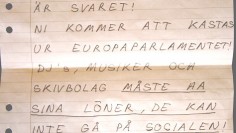 ÄR SVARET!
NI KOMMER ATT KASTAS
UR EUROPAPARLAMENTET!
DJ's, MUSIKER OCH
SKIVBOLAG MÅSTE AA
SINA LÖNER, DE KAN
INTE GÅ PÅ SOCIALEN!